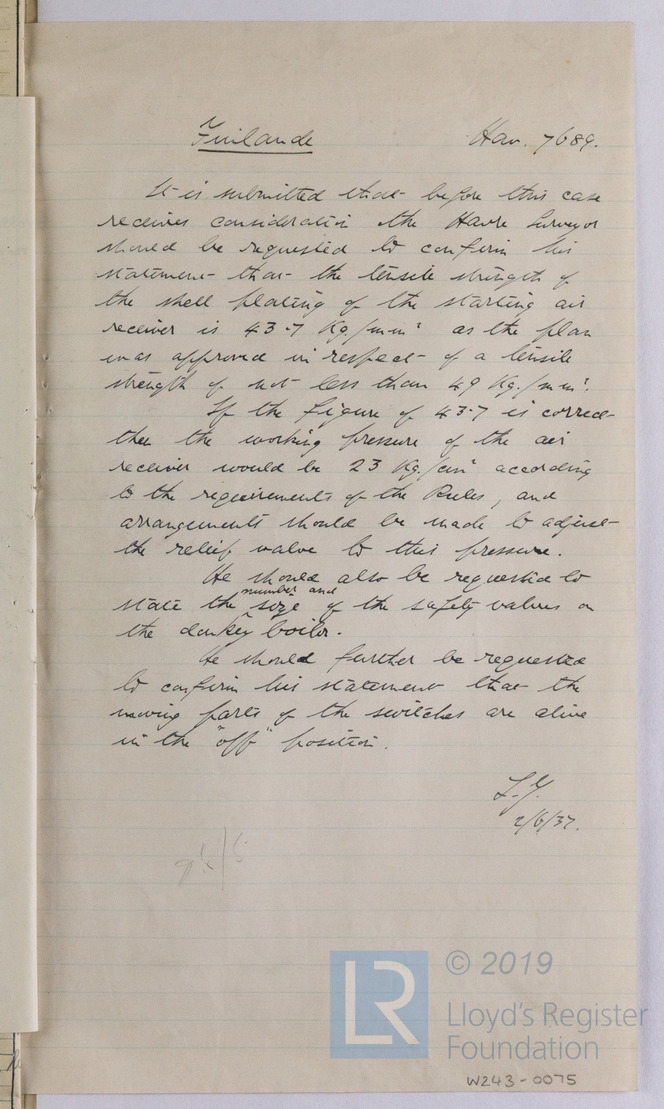 Finlande Hav. 7689.
It is submitted that before this case
receives consideration the Havre Surveyor
should be requested to confirm his
statement that the tensile strength of
the shell plating of the starting air
receiver is 43.7 Kg./mm² as the plan
was approved in respect of a tensile
strength of not less than 49 Kg./mm².
If the figure of 43.7 is correct
then the working pressure of the air
receiver would be 23 Kg/cm² according
to the requirements of the Rules, and
arrangements should be made to adjust
the relief valve to this pressure.
He should also be requested to
number and
state the size of the safety valves on
the donkey boiler.
He should further be requested
to confirm his statement that the
moving parts of the switches are alive
in the "off" position.
2/6/37.
© 2019
LR
Lloyd's Register
Foundation
W243-0075